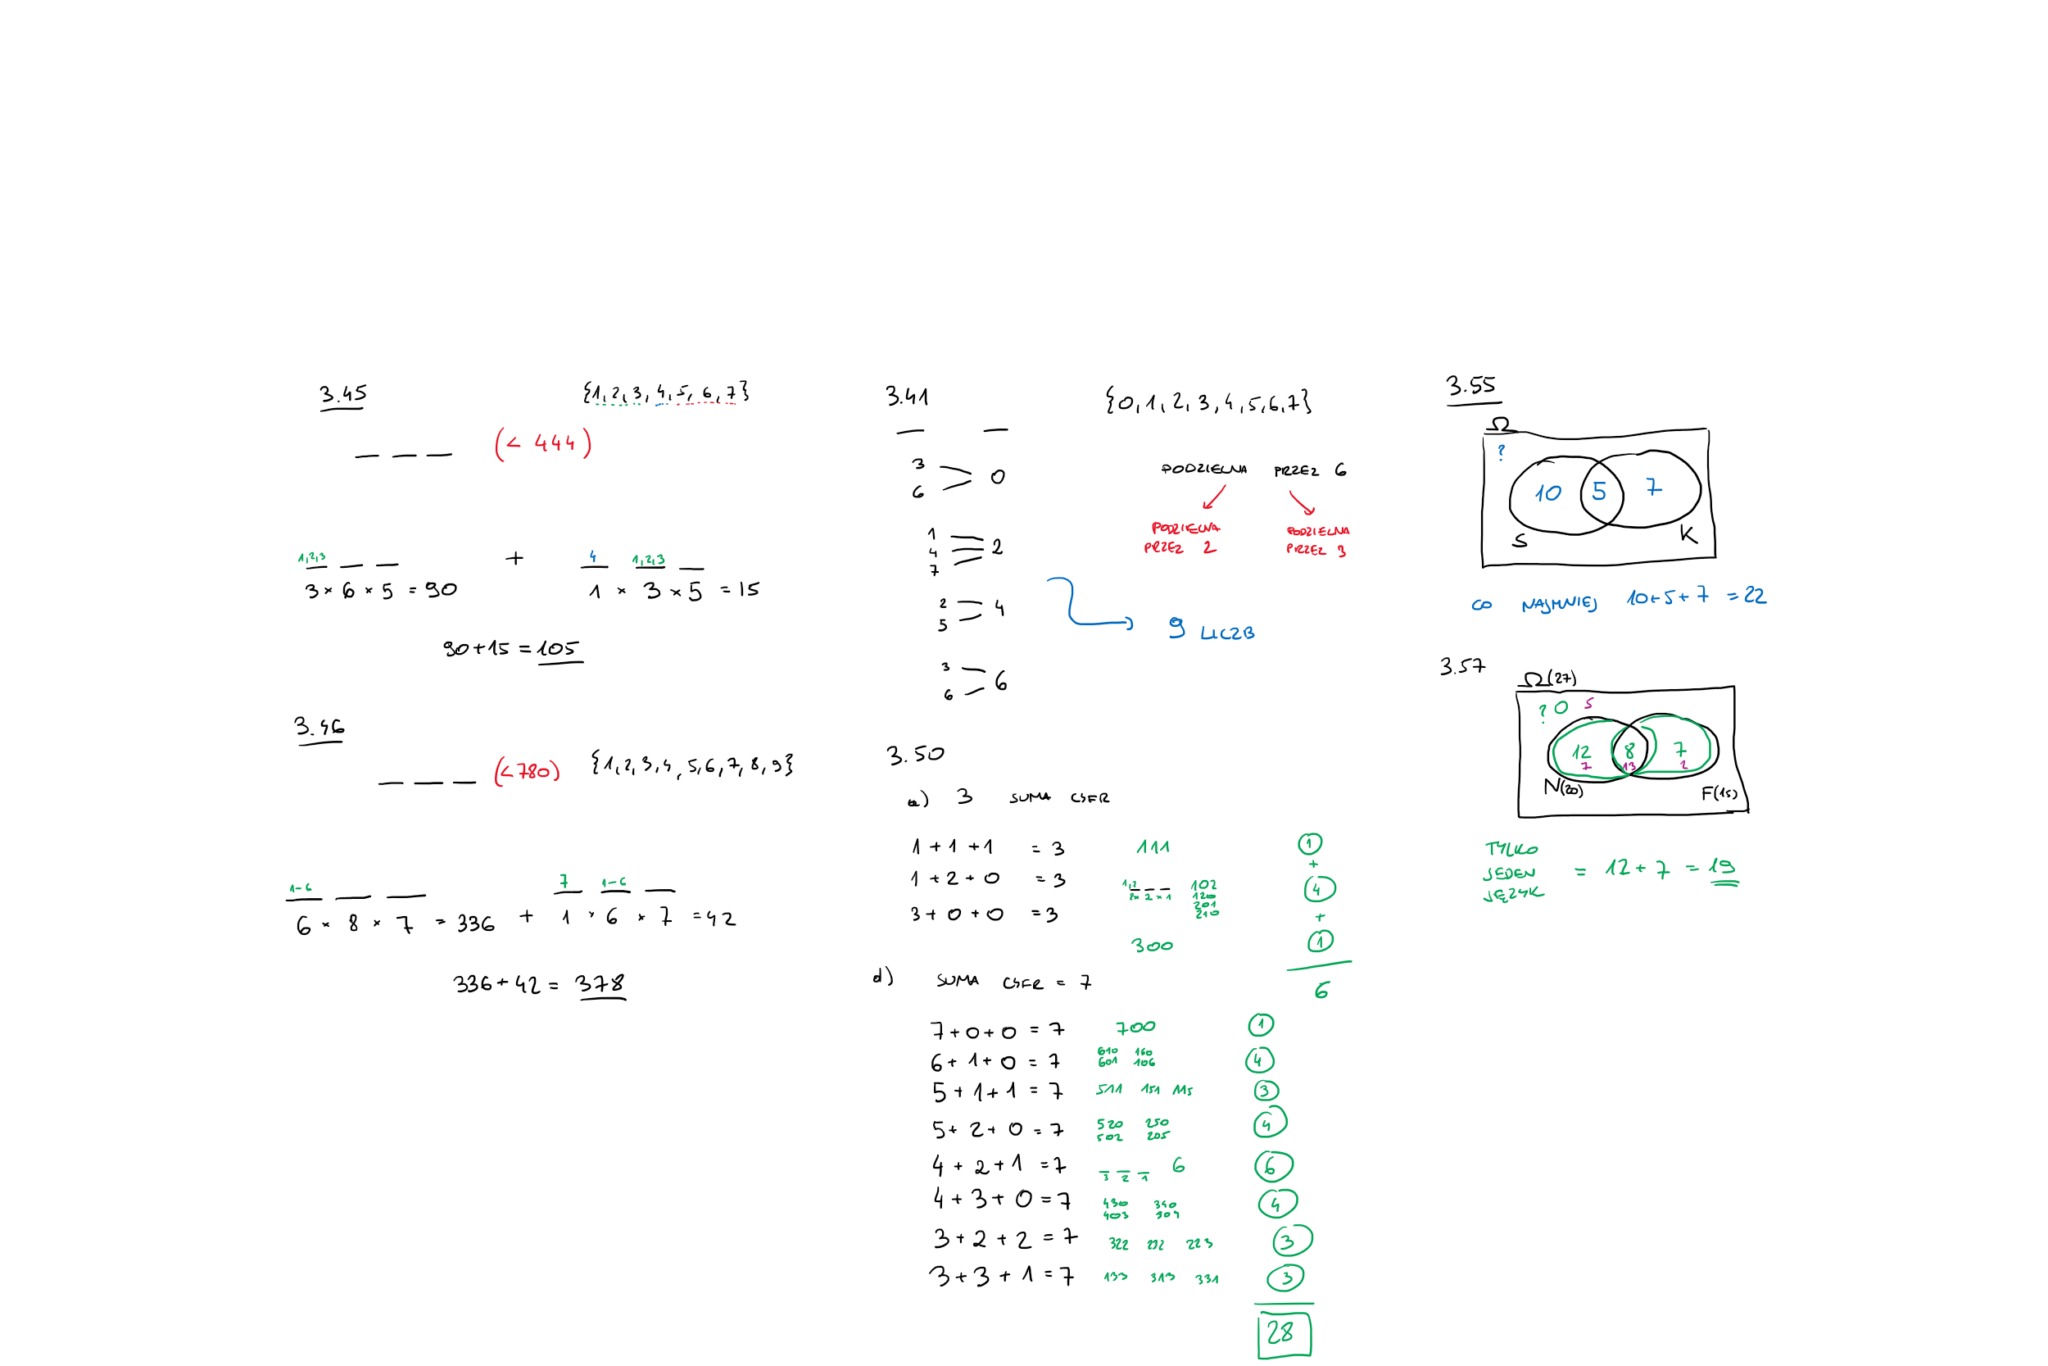 3.45
{1,2,3,4,5,6,7}
(< 444)
1,2,3
+
4 1,2,3
3 × 6 × 5 = 90
1 × 3 × 5 = 15
90+15 = 105
3.46
(<780) {1,2,3,4,5,6,7,8,9}
1-6
7 1-6
6 × 8 × 7 = 336 + 1 × 6 × 7 = 42
336+42 = 378
3.41
{0,1,2,3,4,5,6,7}
3
6
0
1
4
7
2
2
5
4
3
6
6
PODZIELNA PRZEZ 6
PODZIELNA PRZEZ 2
PODZIELNA PRZEZ 3
9 LICZB
3.50
a) 3 SUMA CYFR
1 + 1 + 1 = 3 111 1
+
1 + 2 + 0 = 3 1,2 2 × 2 × 1 102 120 201 210 4
+
3 + 0 + 0 = 3
300 1
6
d) SUMA CYFR = 7
7 + 0 + 0 = 7 700 1
6 + 1 + 0 = 7 610 160 601 106 4
5 + 1 + 1 = 7 511 151 115 3
5 + 2 + 0 = 7 520 250 502 205 4
4 + 2 + 1 = 7 3 2 1 6 6
4 + 3 + 0 = 7 430 340 403 304 4
3 + 2 + 2 = 7 322 232 223 3
3 + 3 + 1 = 7 133 313 331 3
28
3.55
Ω
?
10 5 7
S K
CO NAJMNIEJ 10+5+7 = 22
3.57
Ω(27)
? 0 5
12 8 7
7 13 2
N(20) F(15)
TYLKO
JEDEN = 12 + 7 = 19
JĘZYK